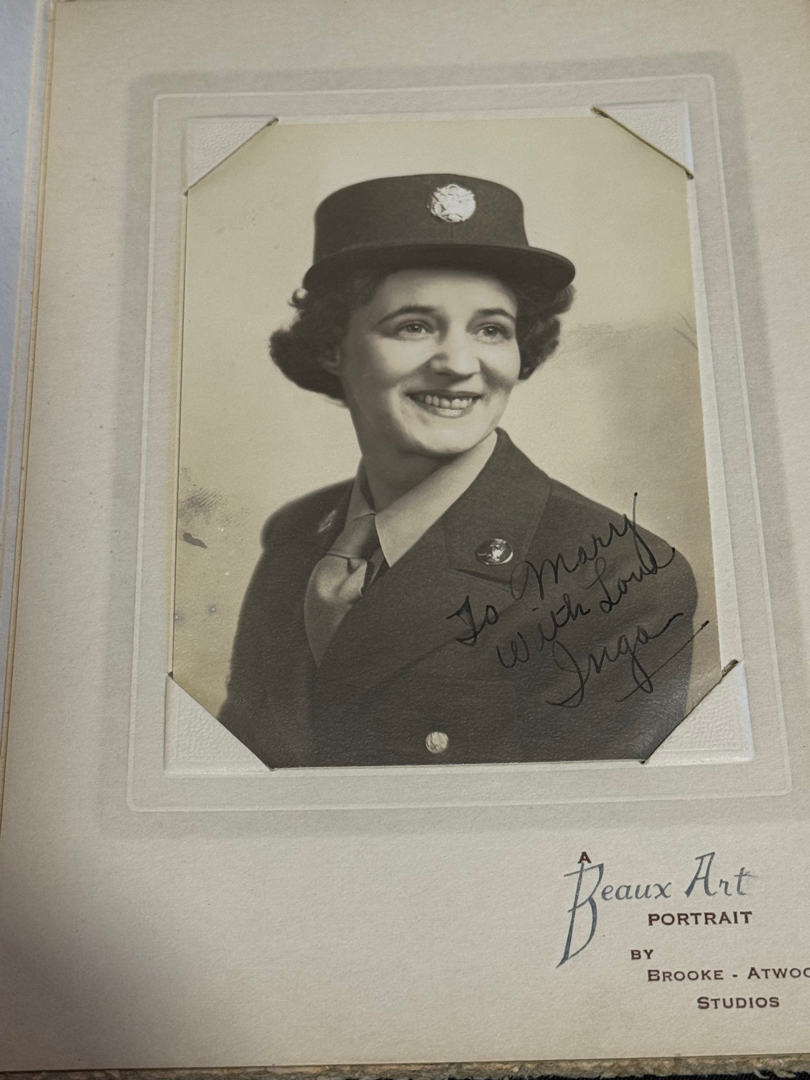 To Mary
With Love
Inga
A
Beaux Art
PORTRAIT
BY
BROOKE - ATWOO
STUDIOS